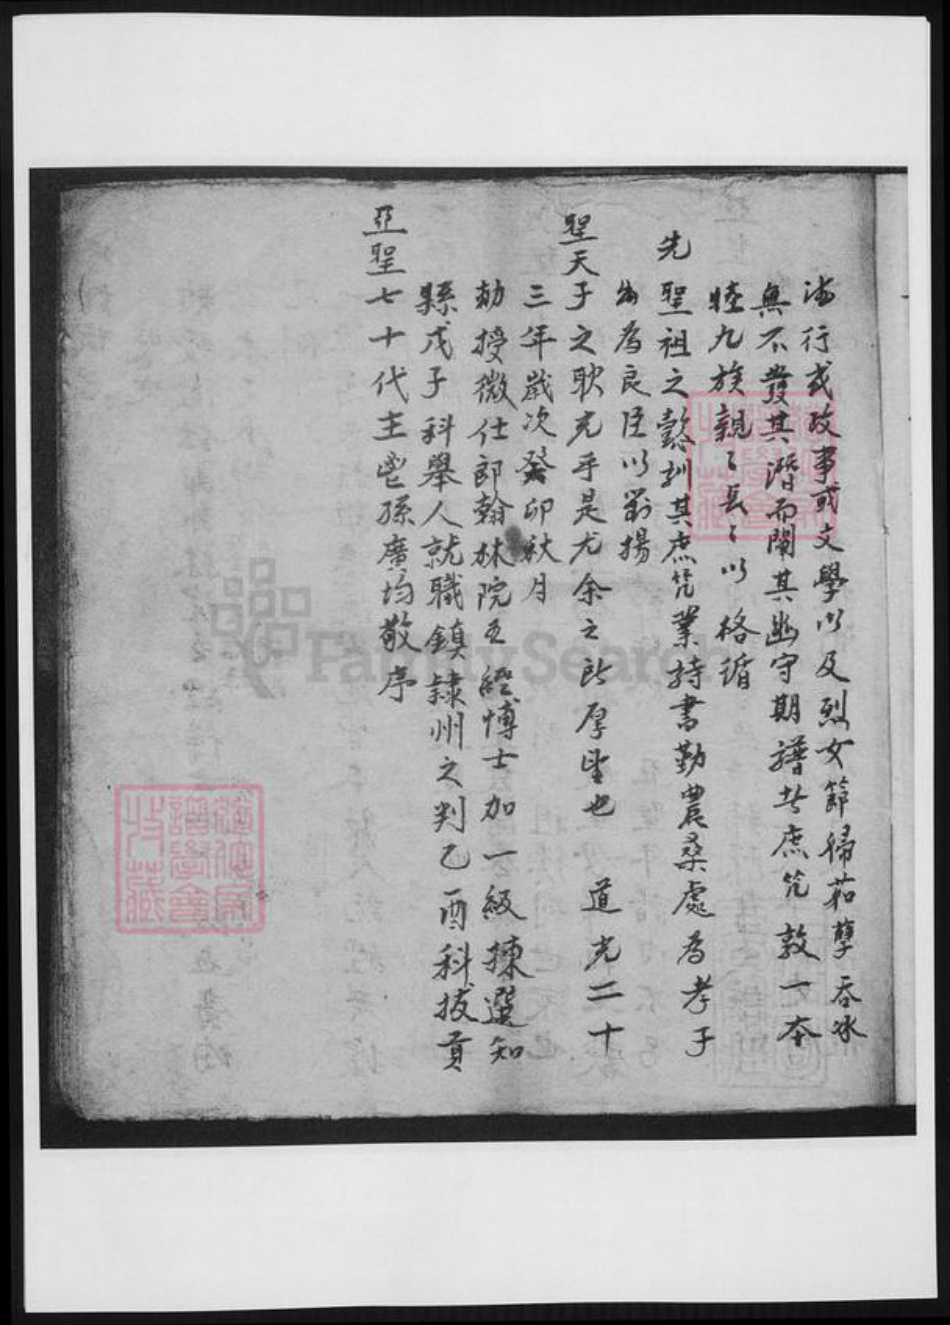 行或政事或文學以及烈女節婦茹孽吞冰
無不發其潛而闡其幽守期譜者庶凭敦一本
睦九族親〻長〻以格循
先聖祖之懿訓其庶凭業詩書勤農桑處為孝子
出為良臣以對揚
聖天子之耿光乎是尤余之所厚望也 道光二十
三年歲次癸卯秋月
勅授微仕郎翰林院五經博士加一級揀選知
縣戊子科舉人就職鎮隸州之判乙酉科拔貢
亞聖七十代主鬯孫廣均敬序
FamilySearch